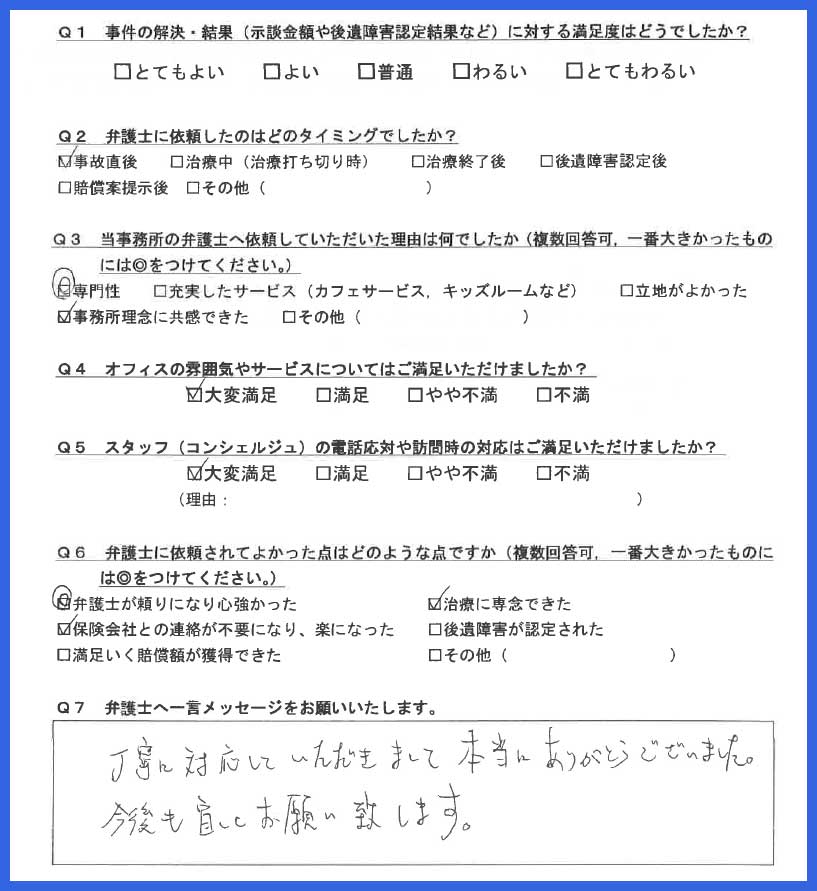 Q1 事件の解決・結果（示談金額や後遺障害認定結果など）に対する満足度はどうでしたか？
□とてもよい □よい □普通 □わるい □とてもわるい
Q2 弁護士に依頼したのはどのタイミングでしたか？
☑事故直後 □治療中（治療打ち切り時） □治療終了後 □後遺障害認定後
□賠償案提示後 □その他（ ）
Q3 当事務所の弁護士へ依頼していただいた理由は何でしたか（複数回答可，一番大きかったもの
には◎をつけてください。）
◎専門性 □充実したサービス（カフェサービス，キッズルームなど） □立地がよかった
☑事務所理念に共感できた □その他（ ）
Q4 オフィスの雰囲気やサービスについてはご満足いただけましたか？
☑大変満足 □満足 □やや不満 □不満
Q5 スタッフ（コンシェルジュ）の電話応対や訪問時の対応はご満足いただけましたか？
☑大変満足 □満足 □やや不満 □不満
（理由： ）
Q6 弁護士に依頼されてよかった点はどのような点ですか（複数回答可，一番大きかったものに
は◎をつけてください。）
◎弁護士が頼りになり心強かった ☑治療に専念できた
☑保険会社との連絡が不要になり、楽になった □後遺障害が認定された
□満足いく賠償額が獲得できた □その他（ ）
Q7 弁護士へ一言メッセージをお願いいたします。
丁寧に対応していただきまして本当にありがとうございました。
今後も宜しくお願い致します。